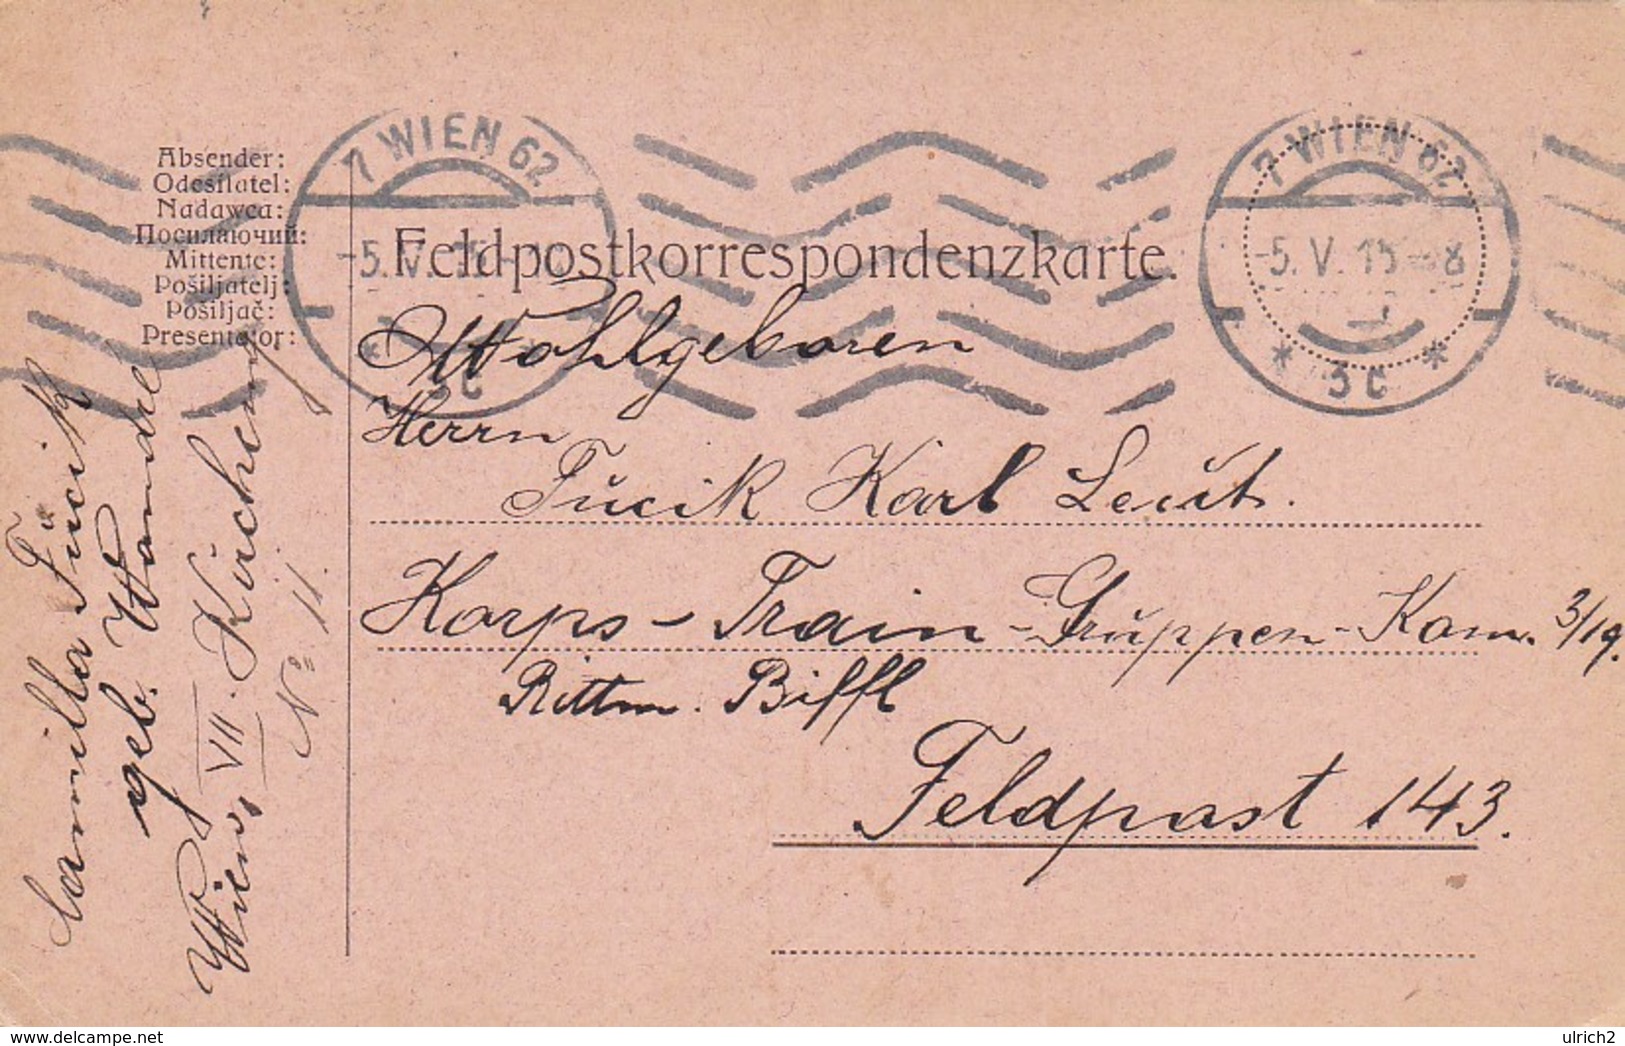 7 WIEN 62
-5. V. 15
3c
7 WIEN 62
-5. V. 15 - 8
* 3c *
Absender:
Odesílatel:
Nadawca:
Посилаючий:
Mittente:
Pošiljatelj:
Pošiljač:
Presentator:
Feldpostkorrespondenzkarte.
Wohlgeboren
Herrn
Fučik Karl Leut.
Korps-Train-Gruppen-Kom. 3/19.
Rittm. Biffl
Feldpost 143.
Camilla Fučik
geb.
Wien, VII. Kircheng
No 11.
delcampe.net
ulrich2